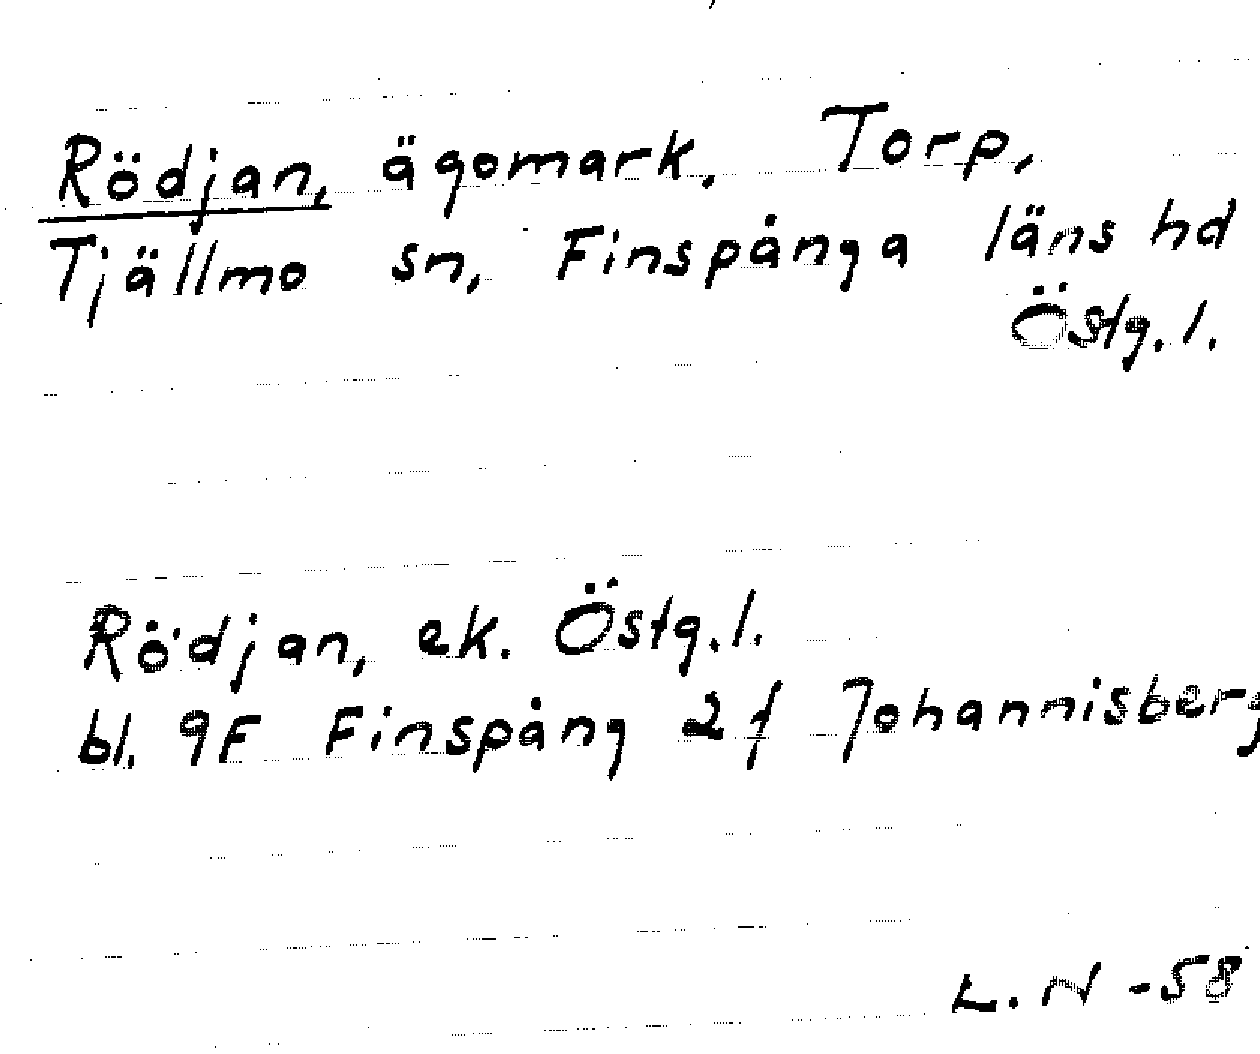 Rödjan, ägomark. Torp,
Tjällmo sn, Finspånga läns hd
Östg.l.
Rödjan, ek. Östg.l.
bl. 9F Finspång 2f Johannisberg
L. N -58